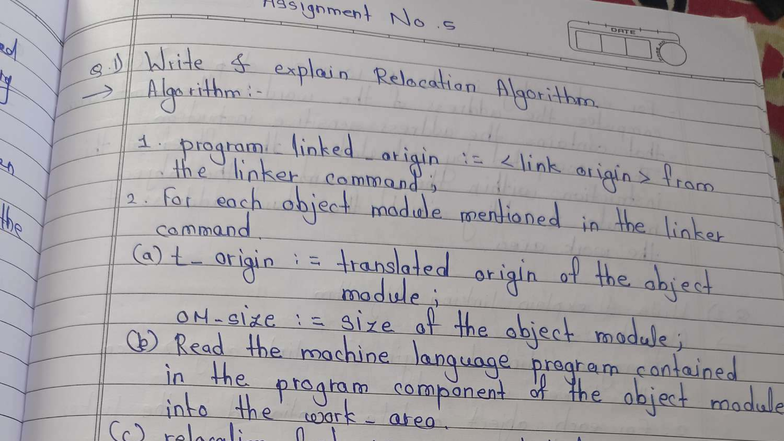 Assignment No. 5
DATE
Q.1) Write & explain Relocation Algorithm
→ Algorithm:-
1. program_linked_origin := <link origin> from
the linker command;
2. For each object module mentioned in the linker
command
(a) t_origin := translated origin of the object
module;
OM_size := size of the object module;
(b) Read the machine language program contained
in the program component of the object module
into the work-area.
(c)
ed
en
the